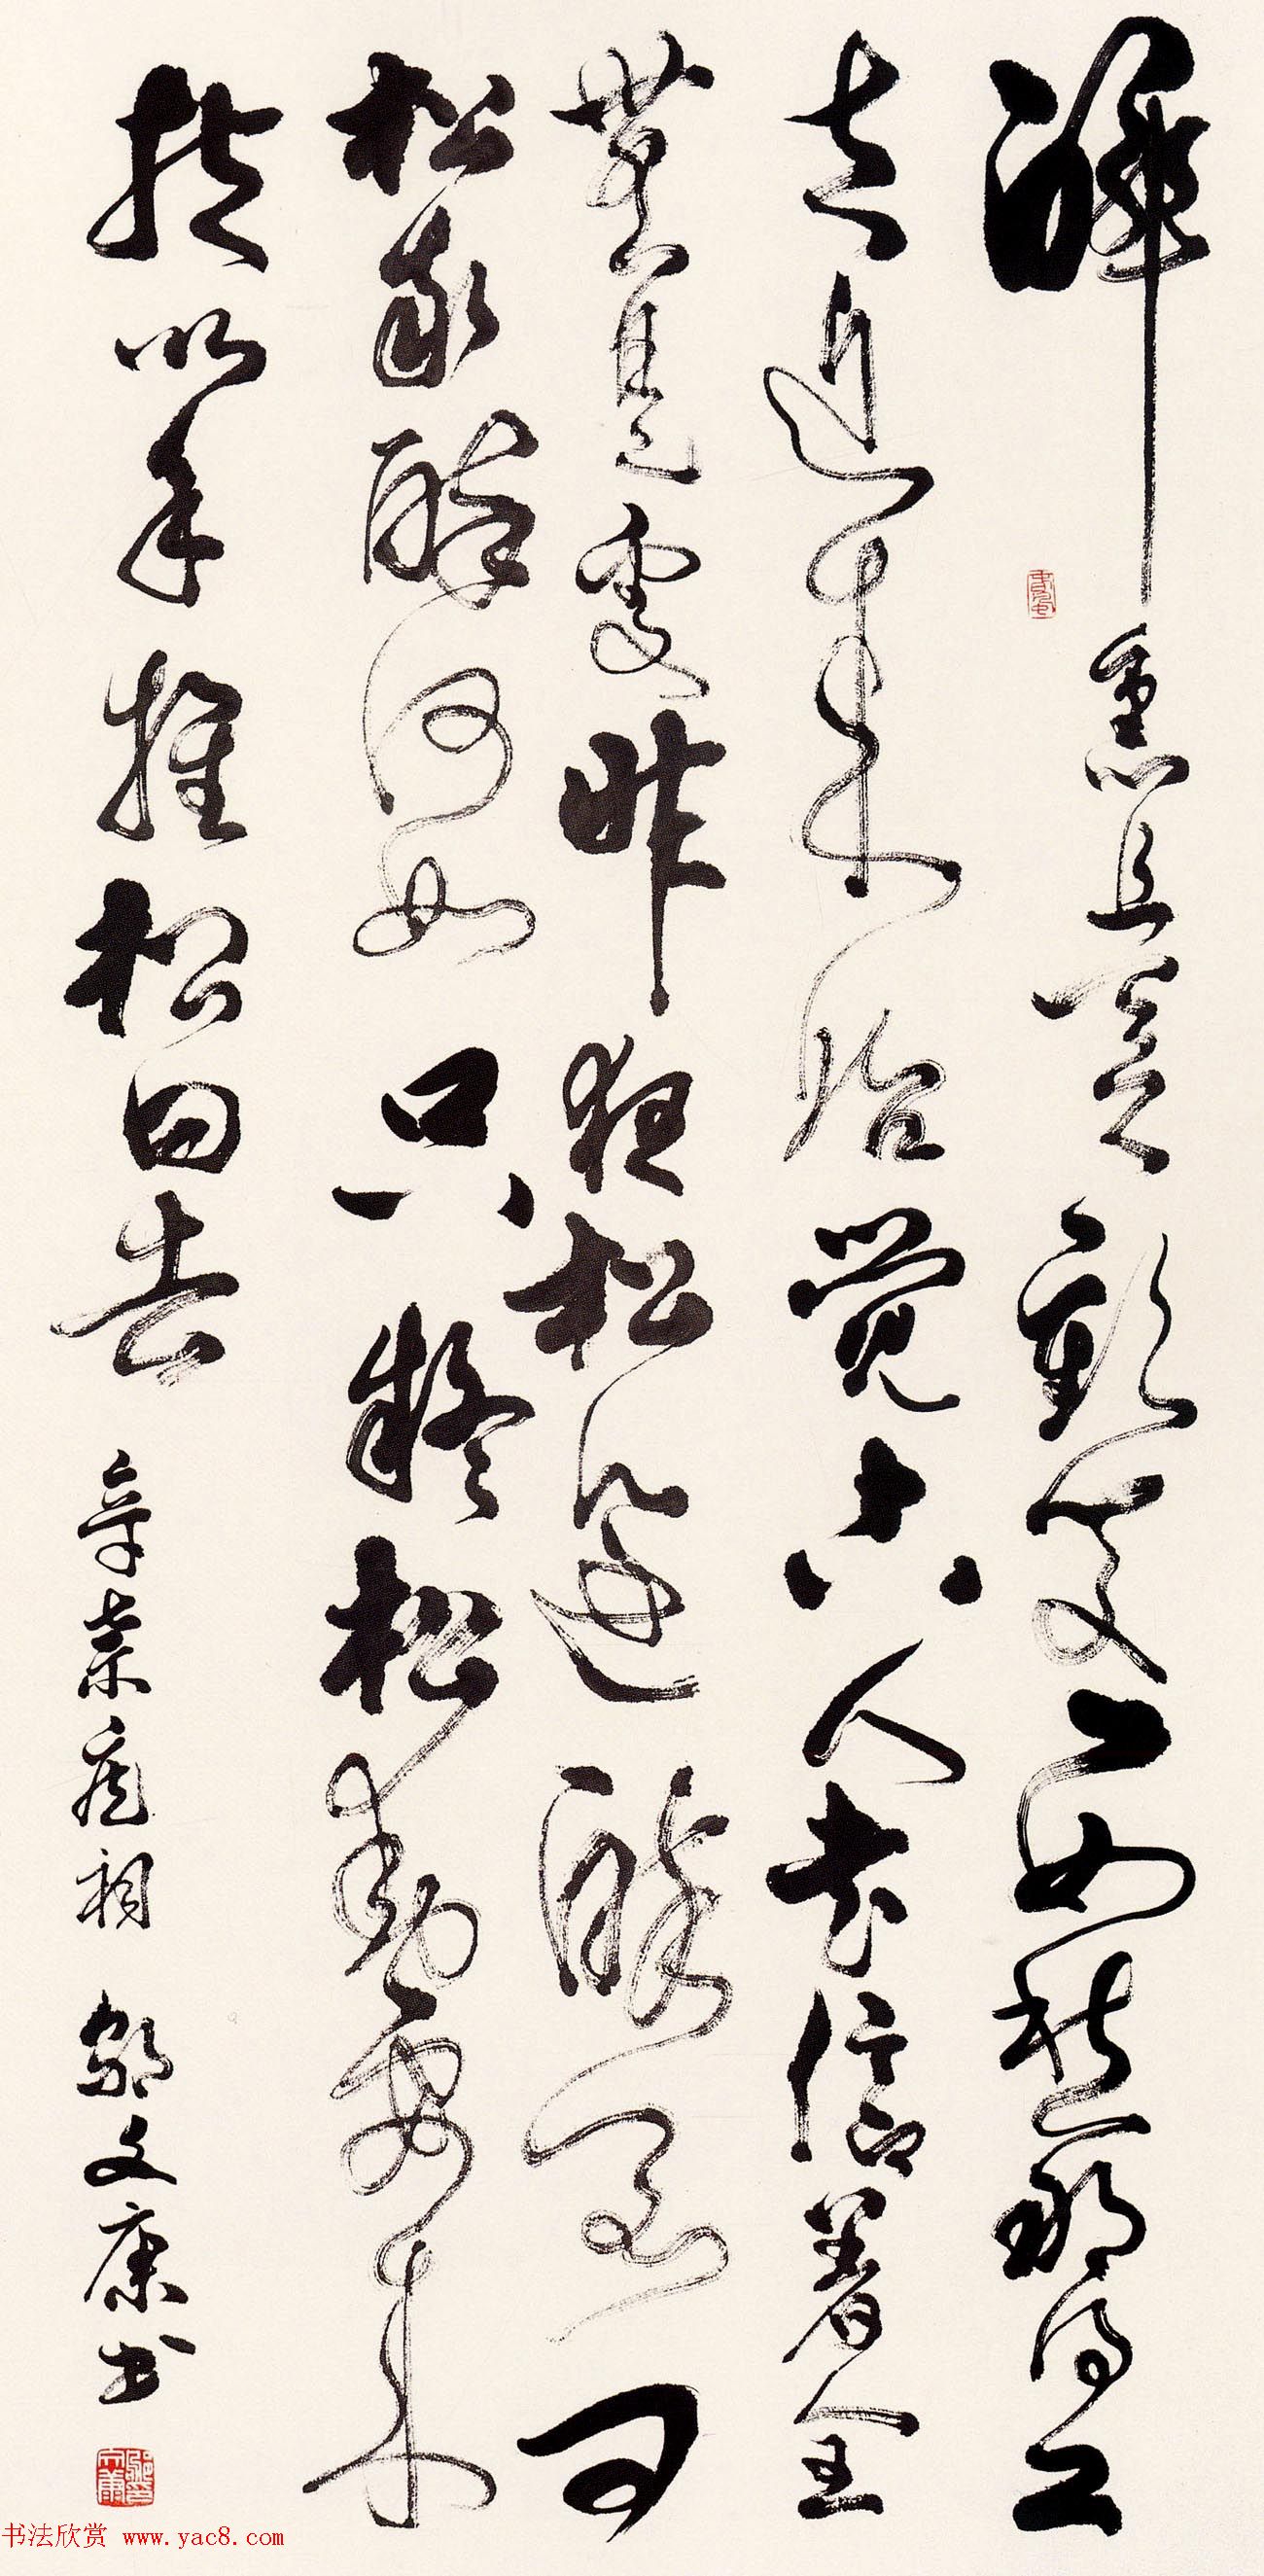 醉里且贪歡笑要愁那得工
夫近来始觉古人书信著全
無是處昨夜松邊醉倒问
松我醉何如只疑松動要来
扶以手推松曰去 辛棄疾词 文康书
书法欣赏 www.yac8.com